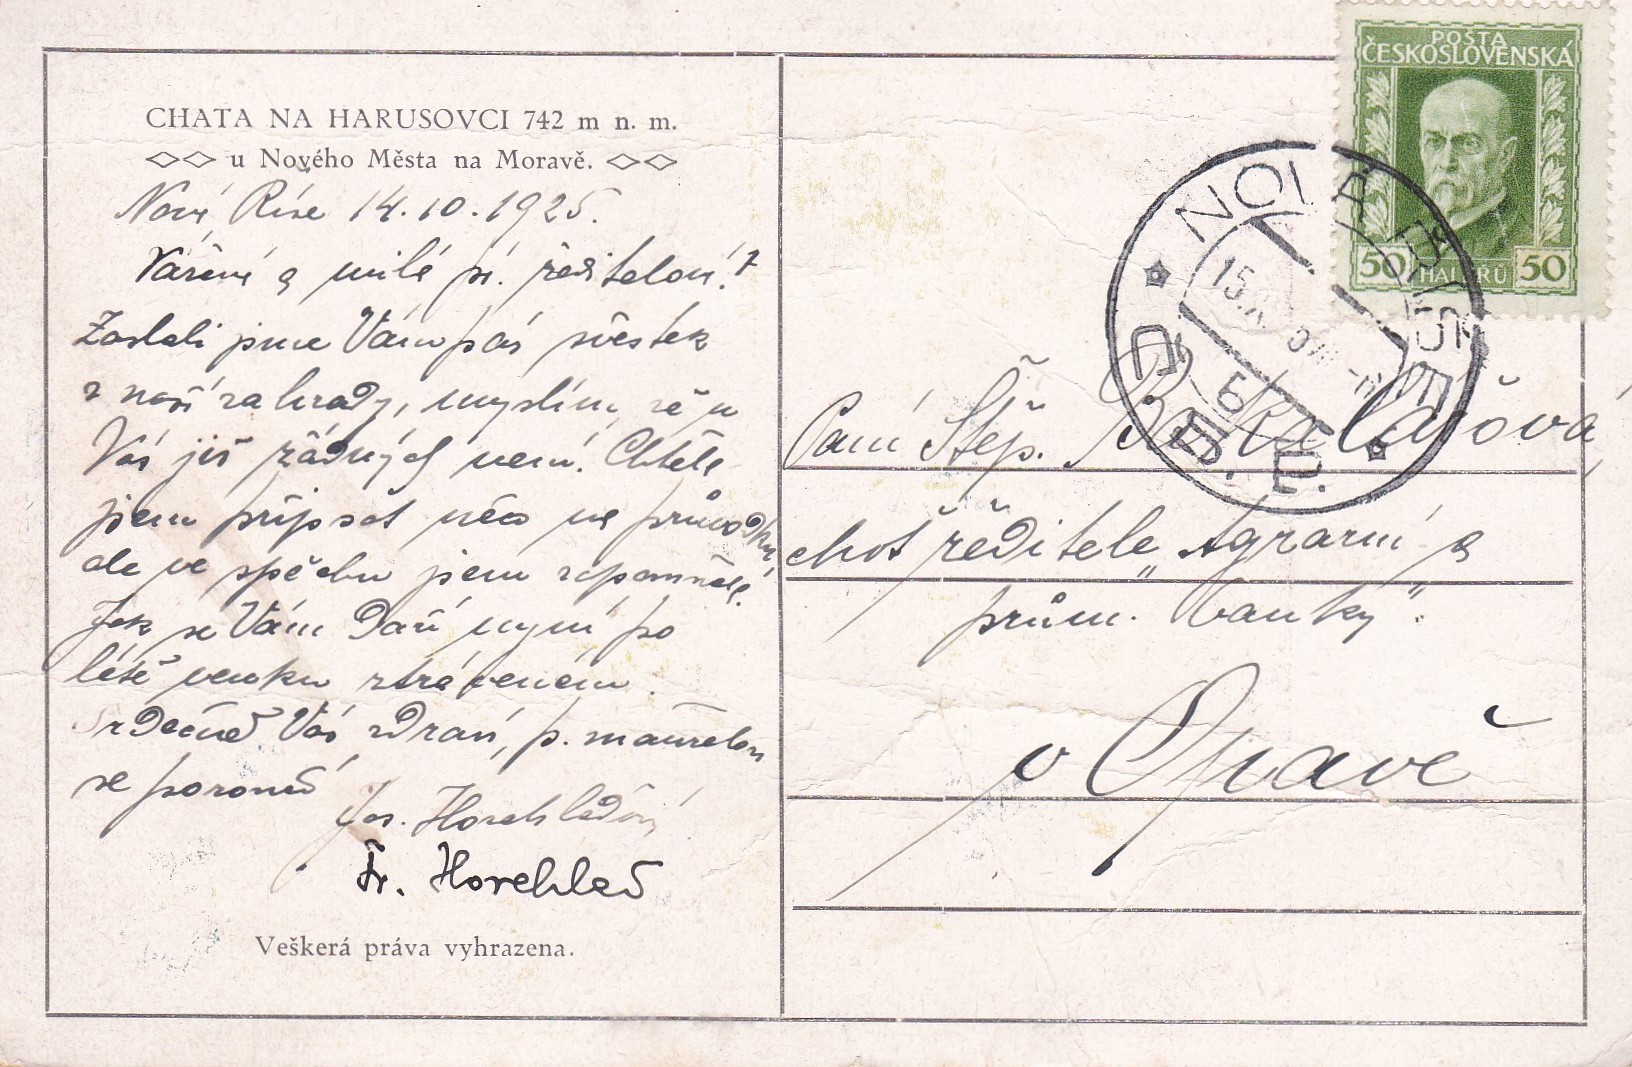 CHATA NA HARUSOVCI 742 m n. m.
u Nového Města na Moravě.
Nová Říše 14.10.1925.
Vážená a milá pí. ředitelová!
Zaslali jsme Vám pár švestek
z naší zahrady, myslím, že u
Vás již řádných není. Chtěla
jsem připsat něco na průvodku,
ale ve spěchu jsem zapomněla.
Jak se Vám daří nyní po
létě venku ztráveném.
Srdečně Vás zdraví, p. manželovi
se poroučí
Jos. Horehleďová
Fr. Horehleď
Veškerá práva vyhrazena.
POŠTA
ČESKOSLOVENSKÁ
50 HALÉŘŮ 50
NOVÁ ŘÍŠE
Paní Štěp. Bakalářová
choť ředitele „Agrární a
prům. banky".
v Opavě